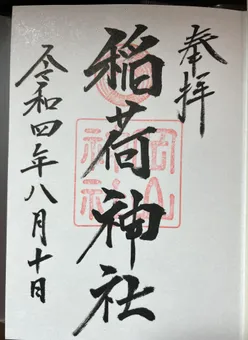 奉拝
稲荷神社
令和四年八月十日